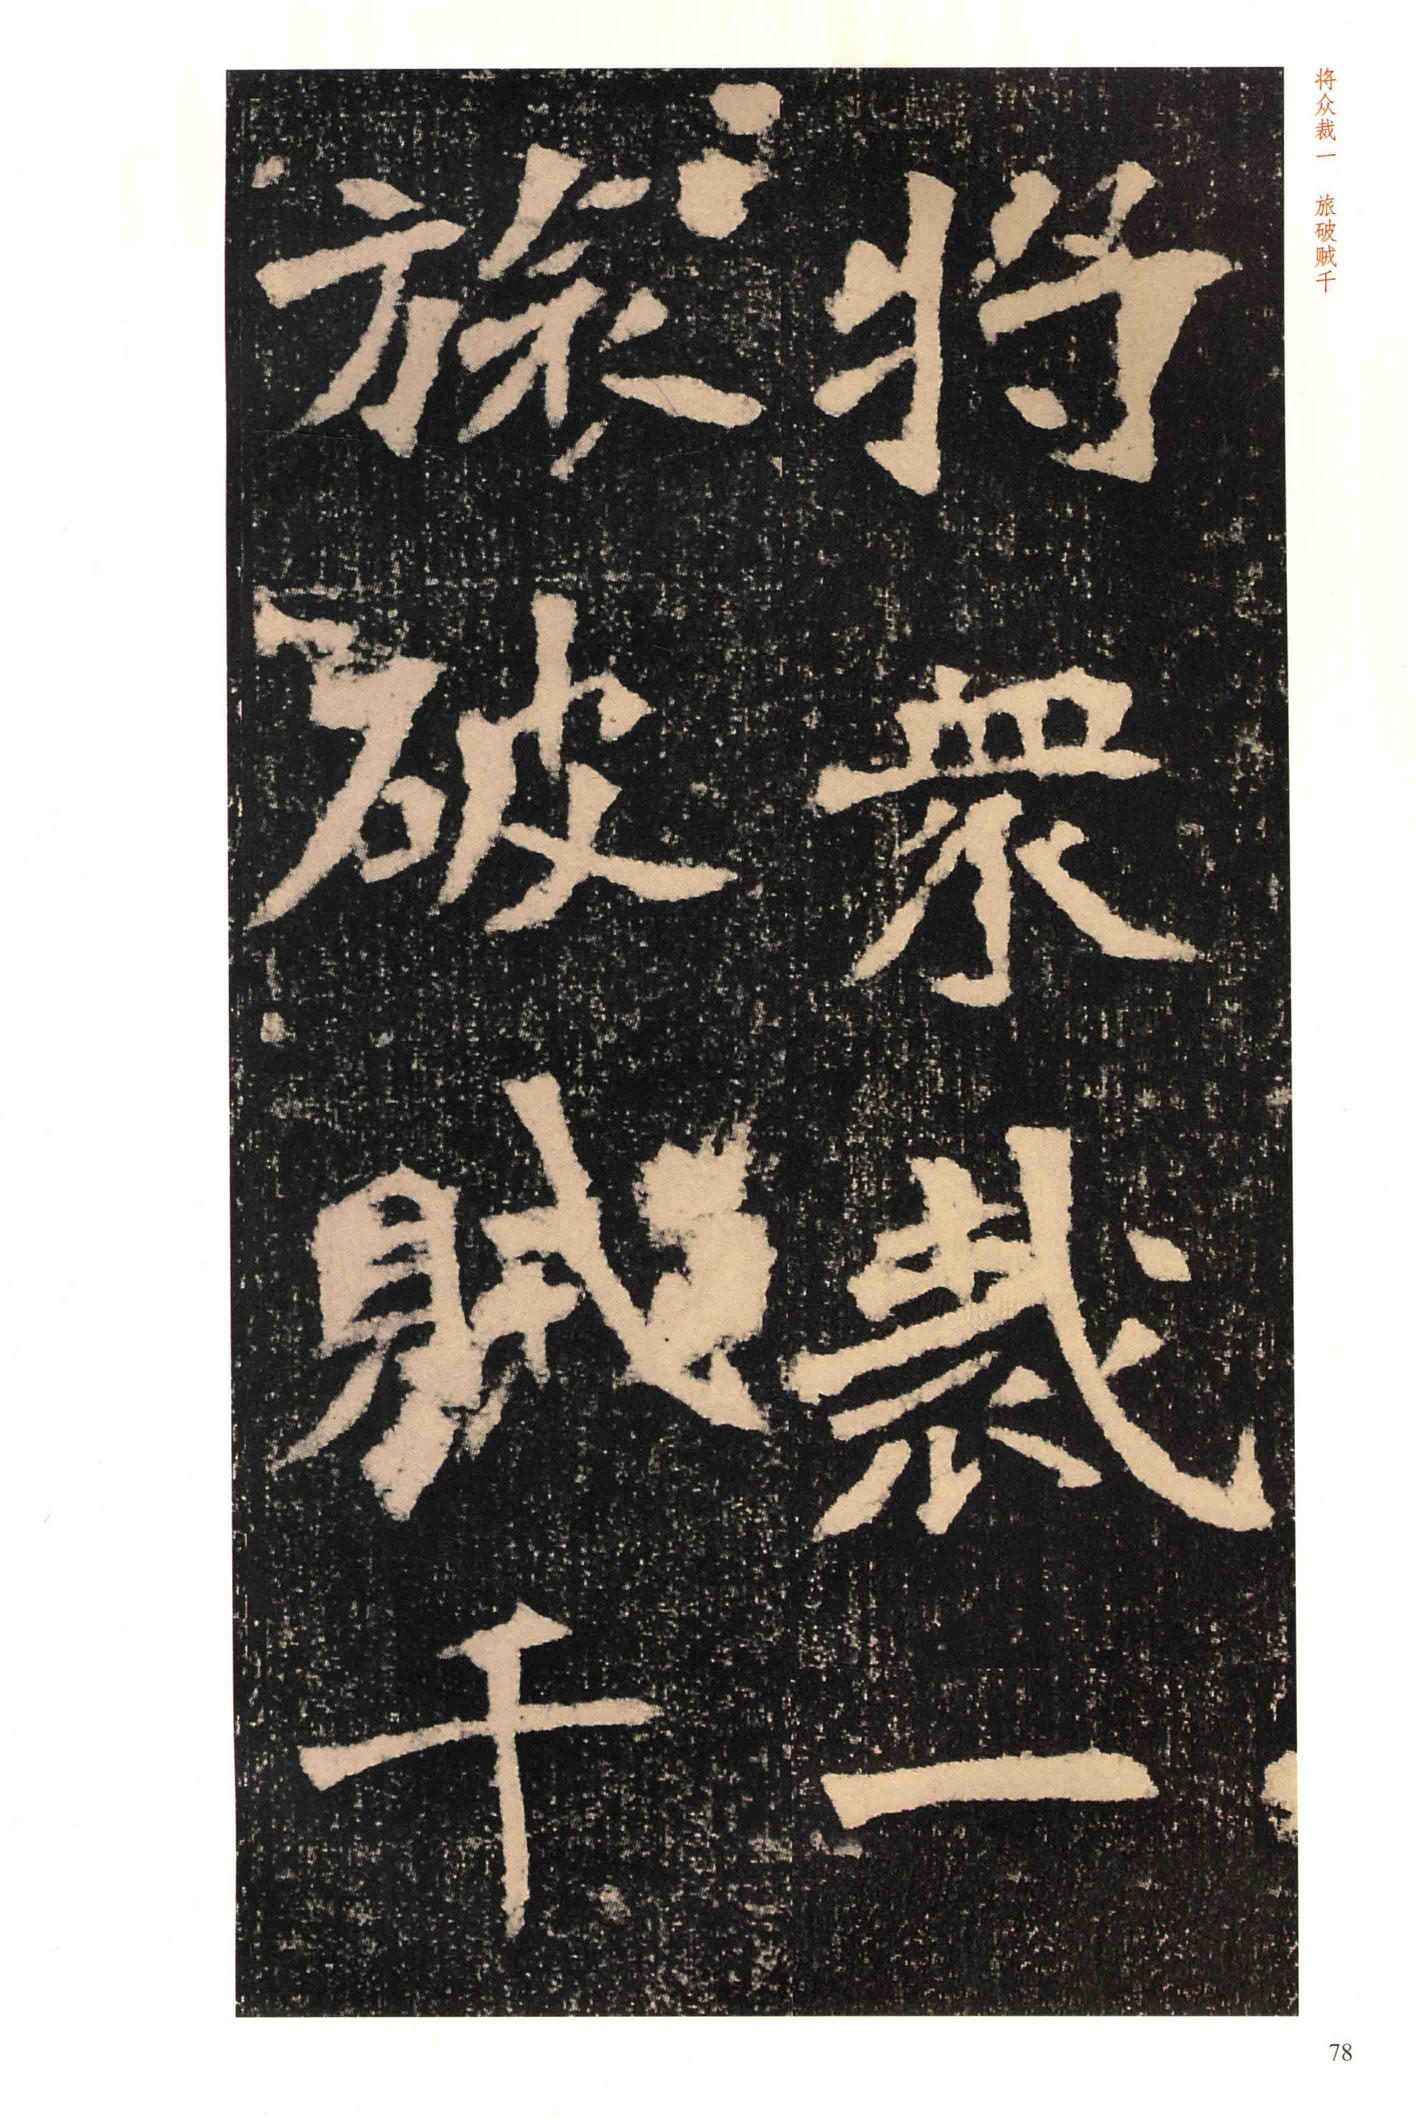 将众裁一 旅破贼千
將衆裁一
旅破賊千
78